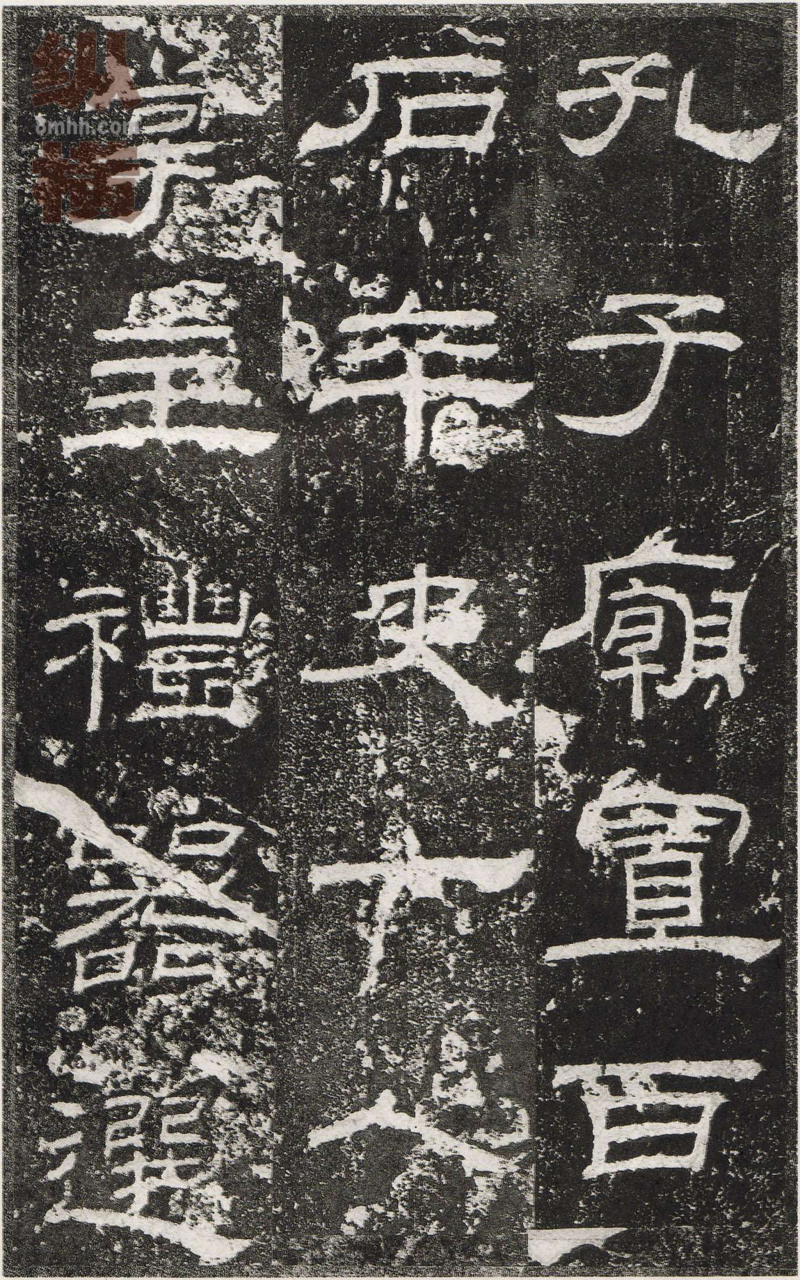 孔子廟置百
石卒史一人
掌主禮器選
纵横